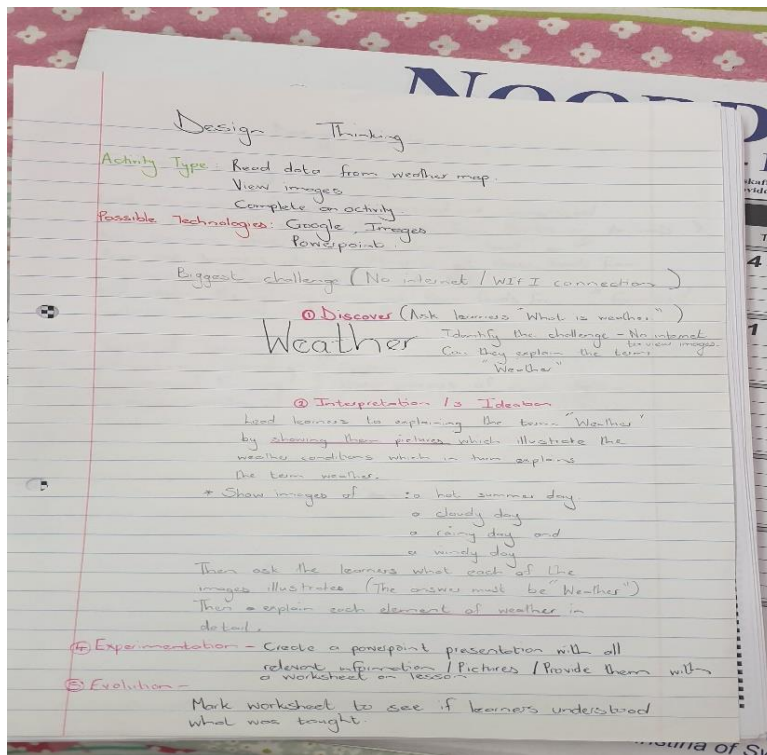 NOORD
Design Thinking
Activity Type: Read data from weather map.
View images
Complete an activity
Possible Technologies: Google, Images
Powerpoint.
Biggest challenge (No internet / WIFI connection)
① Discover (Ask learners "What is weather")
Weather
Identify the challenge - No internet
to view images.
Can they explain the term
"Weather"
② Interpretation / 3 Ideation
Lead learners to explaining the term "Weather"
by showing them pictures which illustrate the
weather conditions which in turn explains
the term weather.
* Show images of : a hot summer day
a cloudy day
a rainy day and
a windy day
Then ask the learners what each of the
images illustrates (The answer must be "Weather")
Then explain each element of weather in
detail.
④ Experimentation - Create a powerpoint presentation with all
relevant information / Pictures / Provide them with
a worksheet on lesson
⑤ Evolution -
Mark worksheet to see if learners understood
what was taught.